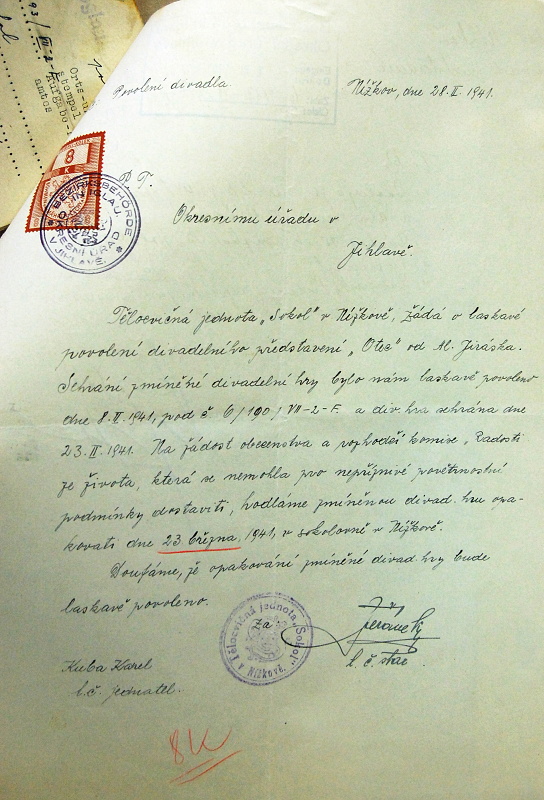 Povolení divadla
Nížkov, dne 28.II. 1941.
P. T.
Okresnímu úřadu v
Jihlavě.
Tělocvičná jednota „Sokol" v Nížkově, žádá o laskavé
povolení divadelního představení „Otec" od Al. Jiráska.
Sehrání zmíněné divadelní hry bylo nám laskavě povoleno
dne 8.II. 1941, pod č 6/190/VII-2-F. a div. hra sehrána dne
23. II. 1941. Na žádost obecenstva a rozhodčí komise „Radosti
ze života, která se nemohla pro nepříznivé povětrnostní
podmínky dostaviti, hodláme zmíněnou divad. hru opa-
kovati dne 23 března, 1941, v sokolovně v Nížkově.
Doufáme, že opakování zmíněné divad. hry bude
laskavě povoleno.
Za
t. č. star.
Kuba Karel
t. č. jednatel.
8K
8
K
BEZIRKSBEHÖRDE
IN IGLAU
OKRESNÍ ÚŘAD
V JIHLAVĚ
Tělocvičná jednota „Sokol"
v Nížkově.
Orts-u
stempel
Aufgabe-
amtes